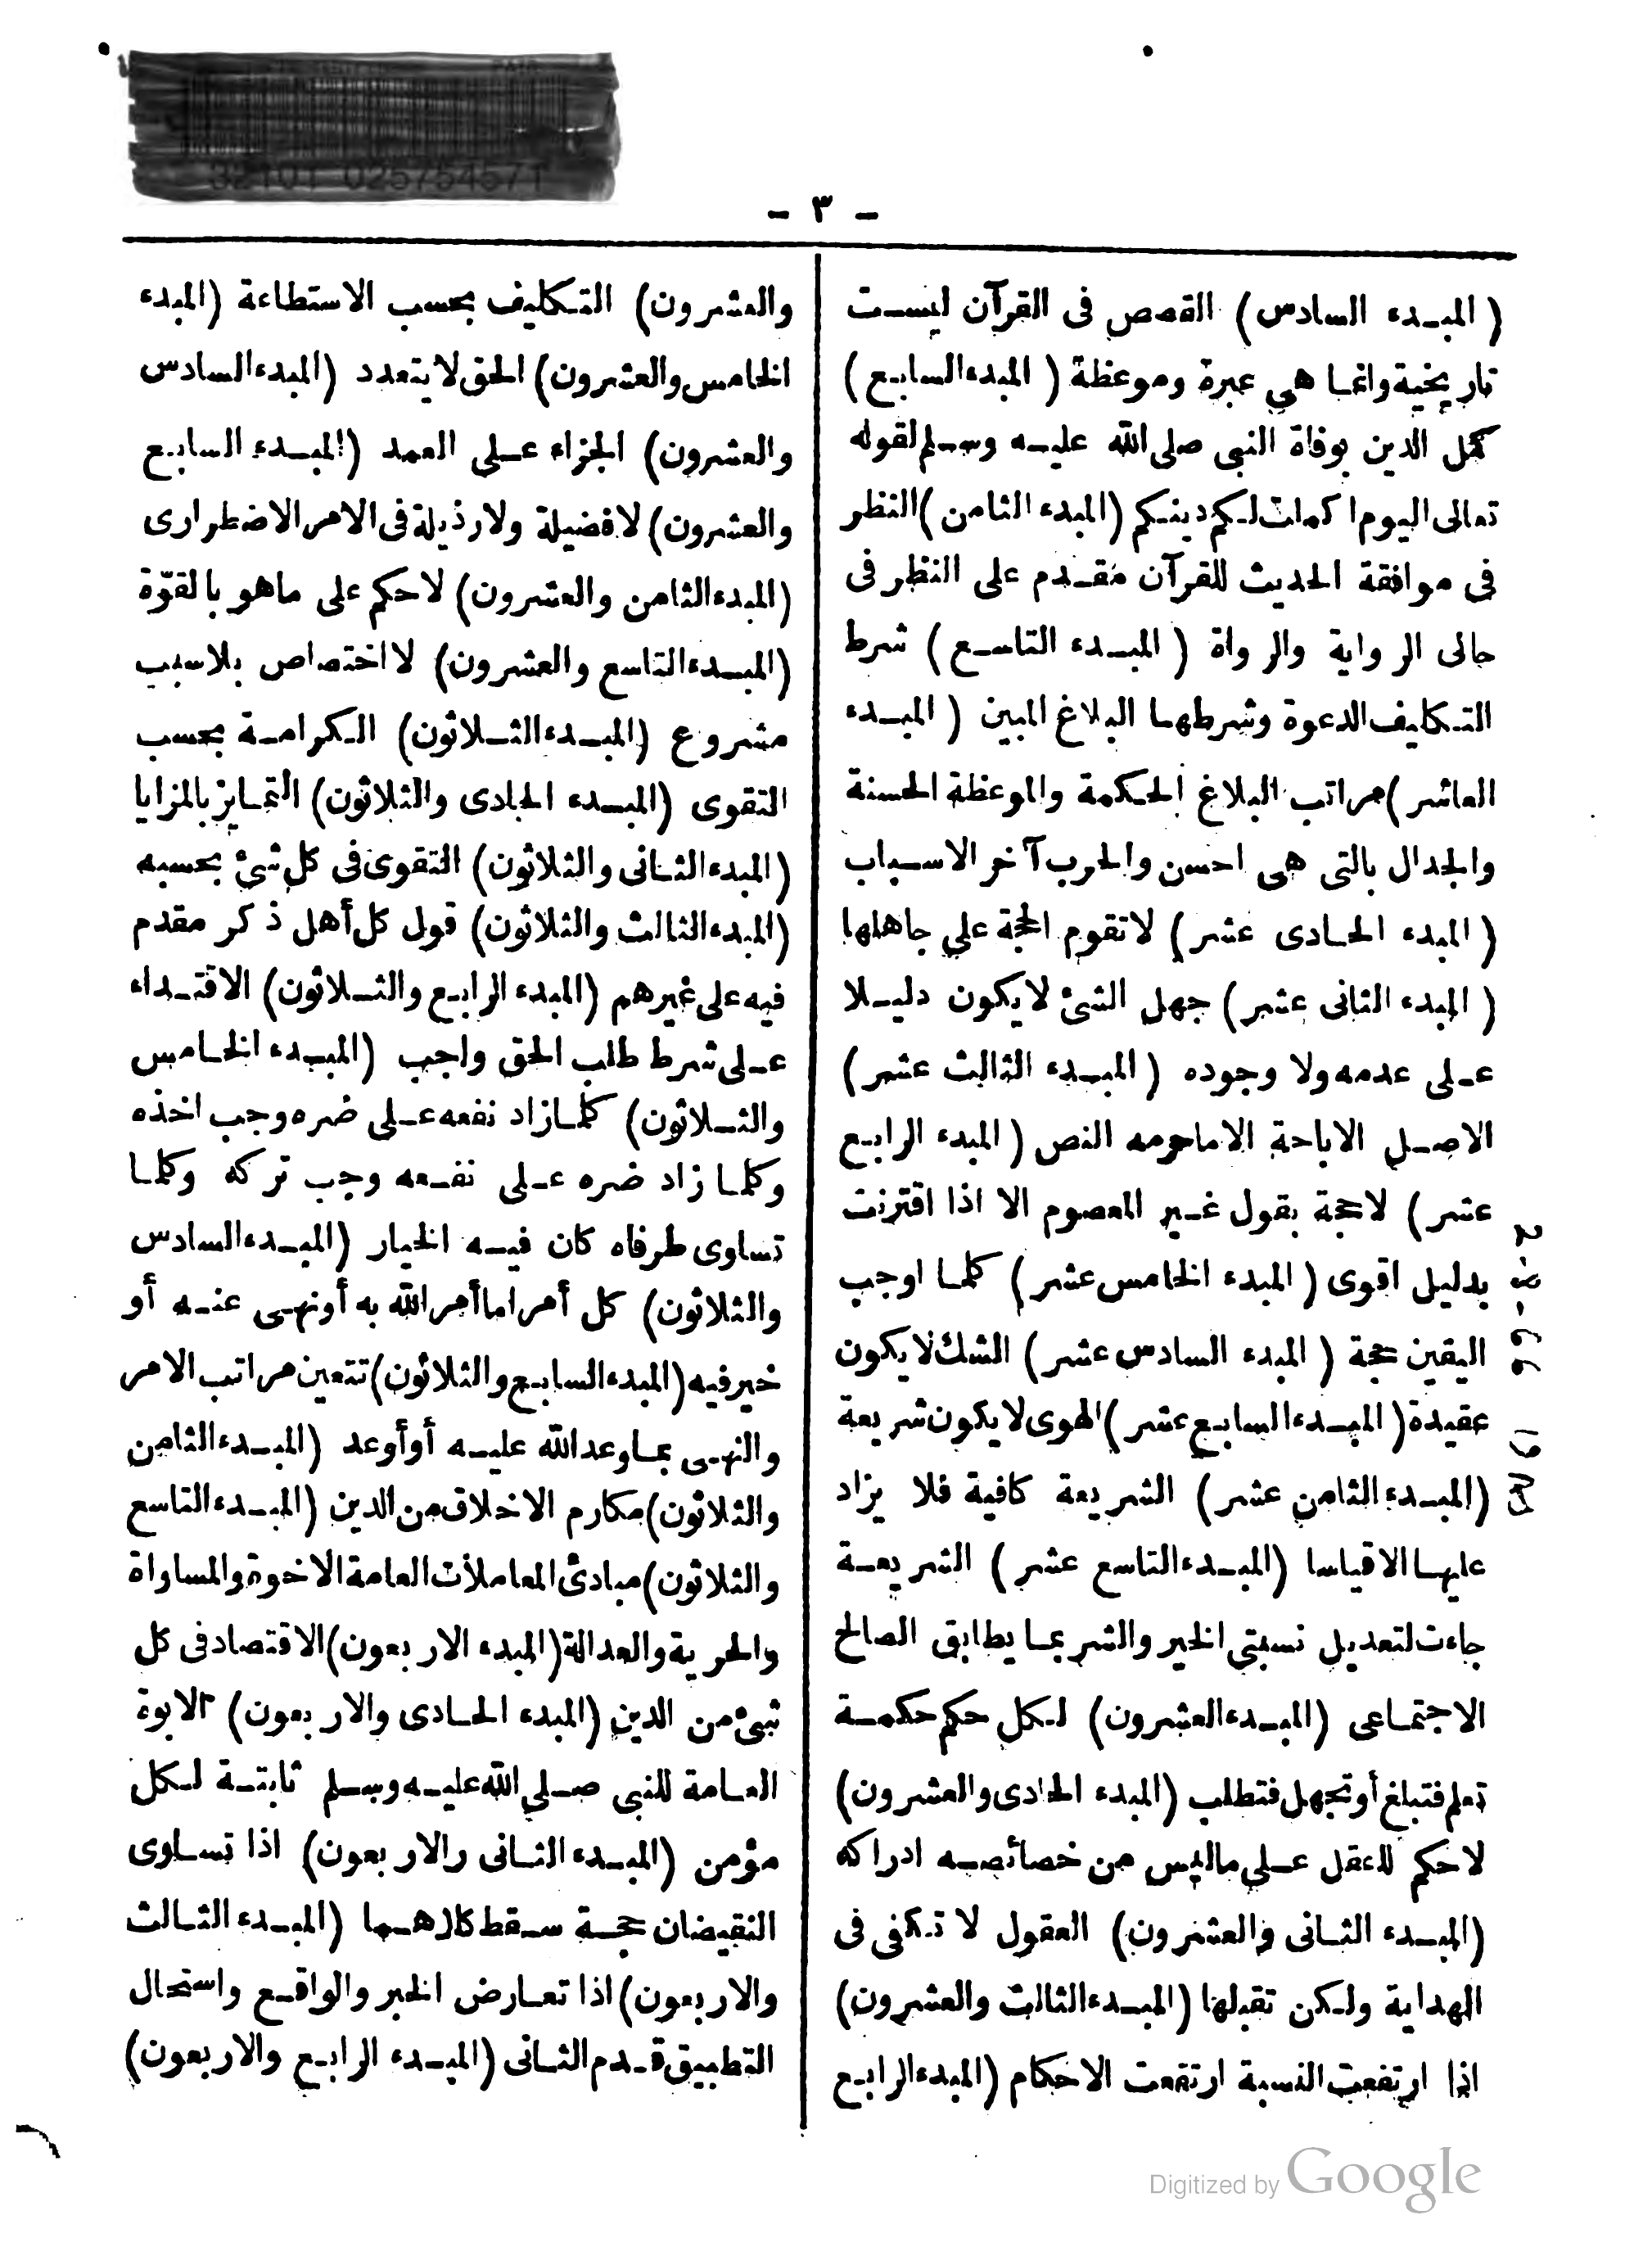 32101 025754571
- ٣ -
(المبدء السادس) القصص فى القرآن ليست
تاريخية وانما هي عبرة وموعظة (المبدء السابع)
كمل الدين بوفاة النبى صلى الله عليه وسلم لقوله
تعالى اليوم اكملت لكم دينكم (المبدء الثامن) النظر
فى موافقة الحديث للقرآن مقدم على النظر فى
حالى الرواية والرواة (المبدء التاسع) شرط
التكليف الدعوة وشرطهما البلاغ المبين (المبدء
العاشر) مراتب البلاغ الحكمة والموعظة الحسنة
والجدال بالتى هى احسن والحرب آخر الاسباب
(المبدء الحادى عشر) لاتقوم الحجة على جاهلها
(المبدء الثانى عشر) جهل الشئ لا يكون دليلا
على عدمه ولا وجوده (المبدء الثالث عشر)
الاصل الاباحة الا ماحرمه النص (المبدء الرابع
عشر) لاحجة بقول غير المعصوم الا اذا اقترنت
بدليل اقوى (المبدء الخامس عشر) كلما اوجب
اليقين حجة (المبدء السادس عشر) الشك لا يكون
عقيدة (المبدء السابع عشر) الهوى لا يكون شريعة
(المبدء الثامن عشر) الشريعة كافية فلا يزاد
عليها الاقياسا (المبدء التاسع عشر) الشريعة
جاءت لتعديل نسبتى الخير والشر بما يطابق الصالح
الاجتماعى (المبدء العشرون) لكل حكم حكمة
تعلم فتبلغ أو تجهل فتطلب (المبدء الحادى والعشرون)
لاحكم للعقل على ماليس من خصائصه ادراكه
(المبدء الثانى والعشرون) العقول لا تكفى فى
الهداية ولكن تقبلها (المبدء الثالث والعشرون)
اذا ارتفعت النسبة ارتفعت الاحكام (المبدء الرابع
والعشرون) التكليف بحسب الاستطاعة (المبدء
الخامس والعشرون) الحق لا يتعدد (المبدء السادس
والعشرون) الجزاء على العمد (المبدء السابع
والعشرون) لا فضيلة ولا رذيلة فى الامر الاضطرارى
(المبدء الثامن والعشرون) لاحكم على ماهو بالقوّة
(المبدء التاسع والعشرون) لا اختصاص بلاسبب
مشروع (المبدء الثلاثون) الكرامة بحسب
التقوى (المبدء الحادى والثلاثون) التمايز بالمزايا
(المبدء الثانى والثلاثون) التقوى فى كل شئ بحسبه
(المبدء الثالث والثلاثون) قول كل أهل ذكر مقدم
فيه على غيرهم (المبدء الرابع والثلاثون) الاقتداء
على شرط طلب الحق واجب (المبدء الخامس
والثلاثون) كلما زاد نفعه على ضره وجب اخذه
وكلما زاد ضره على نفعه وجب تركه وكلما
تساوى طرفاه كان فيه الخيار (المبدء السادس
والثلاثون) كل أمر اما أمر الله به أونهى عنه أو
خير فيه (المبدء السابع والثلاثون) تتعين مراتب الامر
والنهى بما وعد الله عليه أو أوعد (المبدء الثامن
والثلاثون) مكارم الاخلاق من الدين (المبدء التاسع
والثلاثون) مبادئ المعاملات العامة الاخوة والمساواة
والحرية والعدالة (المبدء الاربعون) الاقتصاد فى كل
شئ من الدين (المبدء الحادى والاربعون) الابوة
العامة للنبى صلى الله عليه وسلم ثابتة لكل
مؤمن (المبدء الثانى والاربعون) اذا تساوى
النقيضان حجة سقط كلاهما (المبدء الثالث
والاربعون) اذا تعارض الخبر والواقع واستحال
التطبيق قدم الثانى (المبدء الرابع والاربعون)
Digitized by Google